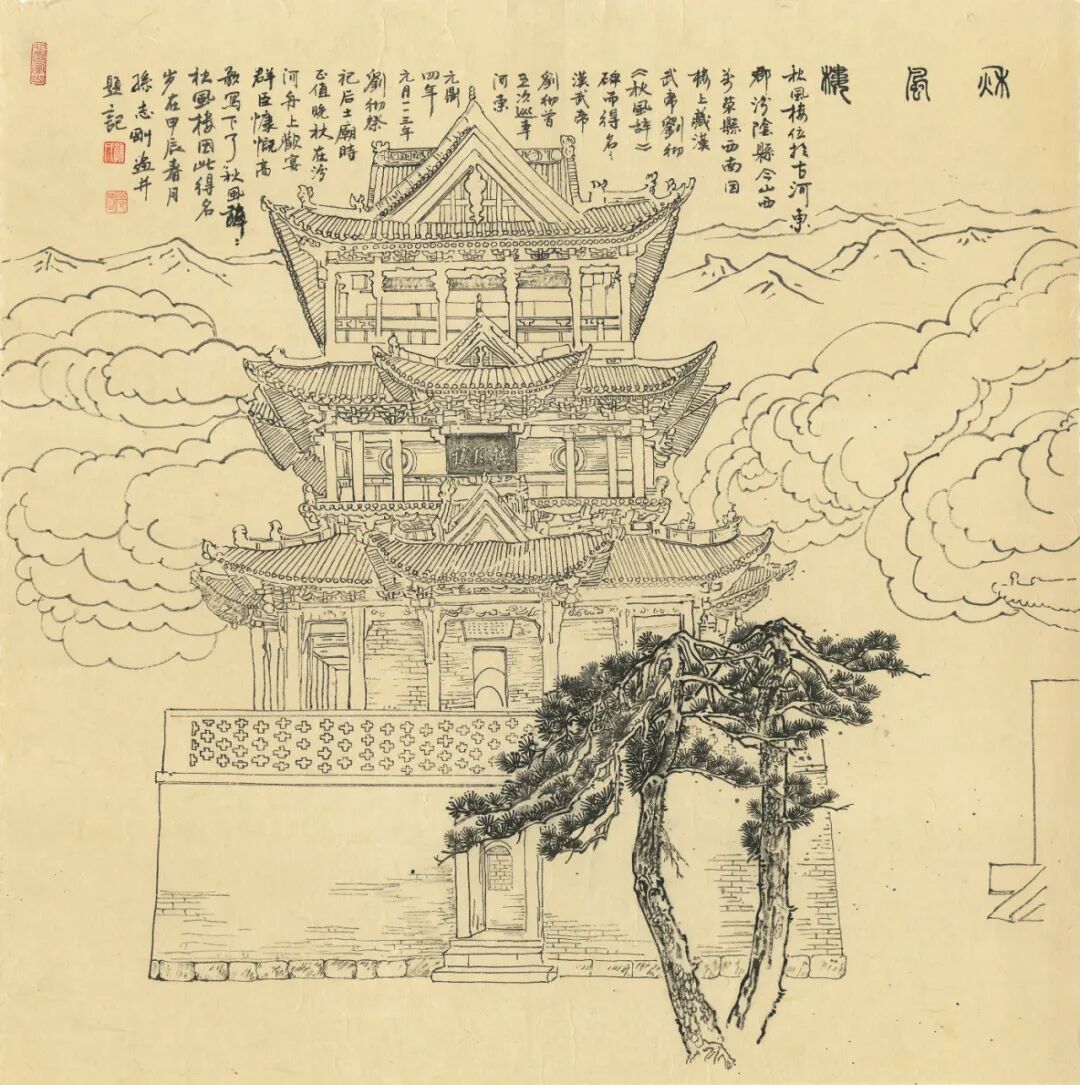 秋風樓
秋風樓位於古河東
郡汾陰縣今山西
萬榮縣西南因
樓上藏漢
武帝劉彻
《秋風辞》
碑而得名
漢武帝
劉彻曾
五次巡幸
河東
元鼎
四年
元月一一三年
劉彻祭
祀后土廟時
正值晚秋在汾
河舟上歡宴
群臣慷慨高
歌写下了秋風辞
秋風樓因此得名
岁在甲辰春月
孫志剛画并
題記
秋風樓